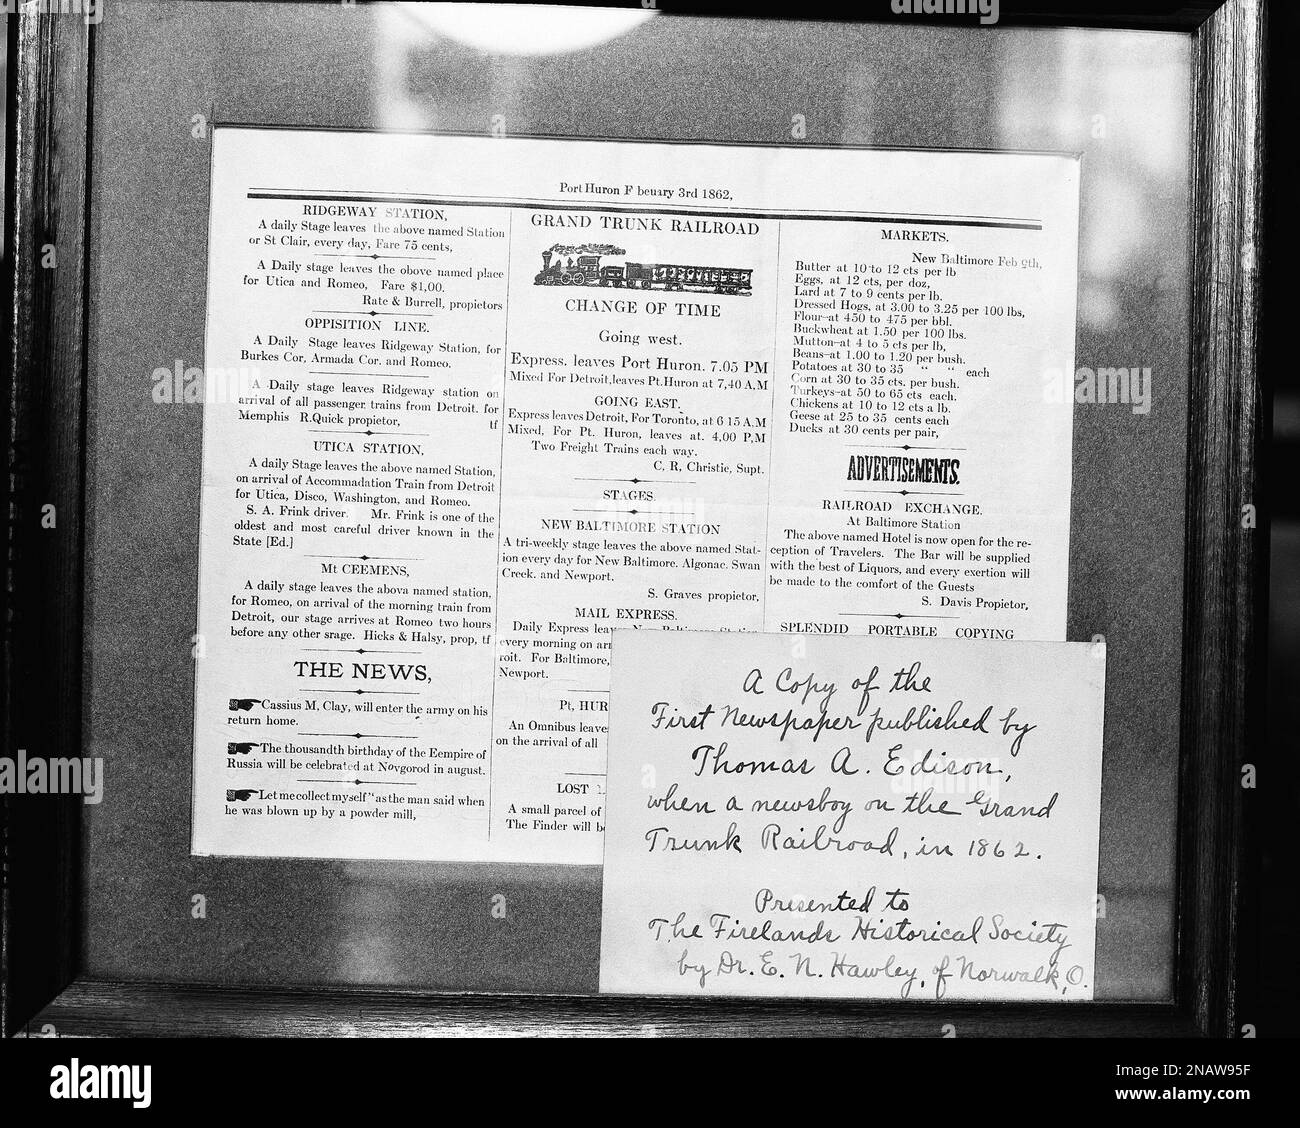 Port Huron F beuary 3rd 1862,
RIDGEWAY STATION,
A daily Stage leaves the above named Station
or St Clair, every day, Fare 75 cents,
A Daily stage leaves the obove named place
for Utica and Romeo, Fare $1,00.
Rate & Burrell, propietors
OPPISITION LINE.
A Daily Stage leaves Ridgeway Station, for
Burkes Cor, Armada Cor. and Romeo.
A Daily stage leaves Ridgeway station on
arrival of all passenger trains from Detroit. for
Memphis R.Quick propietor, tf
UTICA STATION,
A daily Stage leaves the above named Station,
on arrival of Accommadation Train from Detroit
for Utica, Disco, Washington, and Romeo.
S. A. Frink driver. Mr. Frink is one of the
oldest and most careful driver known in the
State [Ed.]
Mt CEEMENS,
A daily stage leaves the abova named station,
for Romeo, on arrival of the morning train from
Detroit, our stage arrives at Romeo two hours
before any other srage. Hicks & Halsy, prop, tf
THE NEWS,
Cassius M, Clay, will enter the army on his
return home.
The thousandth birthday of the Eempire of
Russia will be celebrated at Novgorod in august.
Let me collect myself" as the man said when
he was blown up by a powder mill,
GRAND TRUNK RAILROAD
CHANGE OF TIME
Going west.
Express. leaves Port Huron. 7.05 PM
Mixed For Detroit,leaves Pt.Huron at 7,40 A.M
GOING EAST.
Express leaves Detroit, For Toronto, at 6 15 A,M
Mixed, For Pt. Huron, leaves at. 4,00 P,M
Two Freight Trains each way.
C, R, Christie, Supt.
STAGES.
NEW BALTIMORE STATION
A tri-weekly stage leaves the above named Stat-
ion every day for New Baltimore. Algonac. Swan
Creek. and Newport.
S. Graves propietor,
MAIL EXPRESS.
Daily Express
every morning on
roit. For Baltimore,
Newport.
Pt, HUR
An Omnibus
on the arrival of all
LOST
A small parcel of
The Finder will
MARKETS.
New Baltimore Feb
Butter at 10 to 12 cts per lb
Eggs, at 12 cts, per doz,
Lard at 7 to 9 cents per lb.
Dressed Hogs, at 3.00 to 3.25 per 100 lbs,
Flour—at 450 to 475 per bbl.
Buckwheat at 1.50 per 100 lbs.
Mutton—at 4 to 5 cts per lb,
Beans—at 1.00 to 1.20 per bush.
Potatoes at 30 to 35 " " each
Corn at 30 to 35 cts. per bush.
Turkeys—at 50 to 65 cts each.
Chickens at 10 to 12 cts a lb.
Geese at 25 to 35 cents each
Ducks at 30 cents per pair,
ADVERTISEMENTS.
RAILROAD EXCHANGE.
At Baltimore Station
The above named Hotel is now open for the re-
ception of Travelers. The Bar will be supplied
with the best of Liquors, and every exertion will
be made to the comfort of the Guests
S. Davis Propietor,
SPLENDID PORTABLE COPYING
A Copy of the
First Newspaper published by
Thomas A. Edison,
when a newsboy on the Grand
Trunk Railroad, in 1862.
Presented to
The Firelands Historical Society
by Dr. E. N. Hawley, of Norwalk, O.
alamy
Image ID: 2NAW95F
www.alamy.com